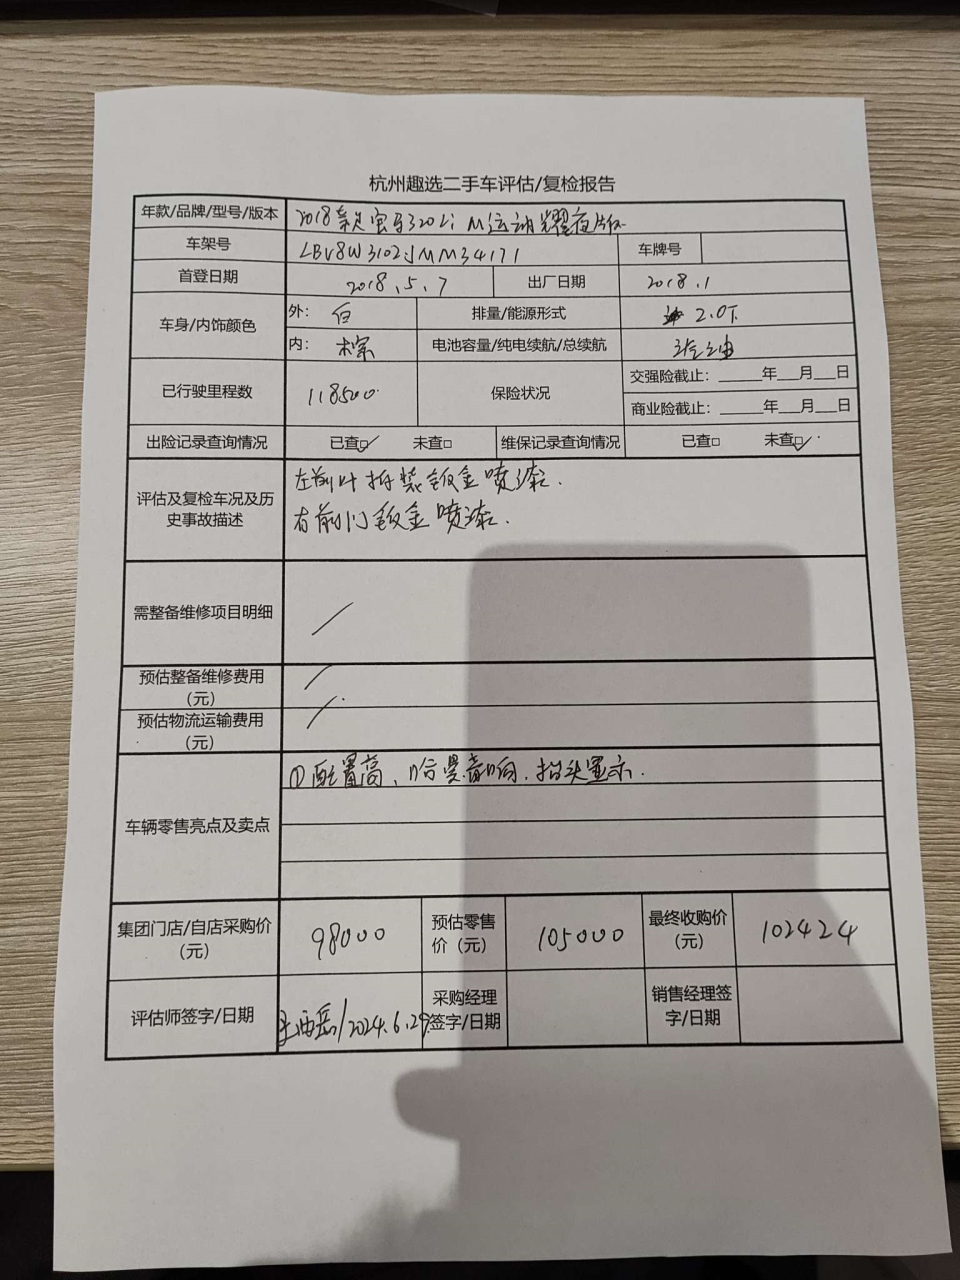 杭州趣选二手车评估/复检报告
年款/品牌/型号/版本 2018款宝马320Li M运动耀夜版
车架号 LBV8W3102JMM34171 车牌号
首登日期 2018.5.7 出厂日期 2018.1
车身/内饰颜色 外: 白 排量/能源形式 2.0T
内: 棕 电池容量/纯电续航/总续航 汽油
已行驶里程数 118500 保险状况 交强险截止: ______年___月___日
商业险截止: ______年___月___日
出险记录查询情况 已查☑ 未查□ 维保记录查询情况 已查□ 未查☑
评估及复检车况及历史事故描述 左前叶拆装钣金喷漆.
右前门钣金喷漆.
需整备维修项目明细 /
预估整备维修费用(元) /
预估物流运输费用(元) /
车辆零售亮点及卖点 ①配置高、哈曼音响、抬头显示.
集团门店/自店采购价(元) 98000 预估零售价(元) 105000 最终收购价(元) 102424
评估师签字/日期 /2024.6.29 采购经理签字/日期 销售经理签字/日期